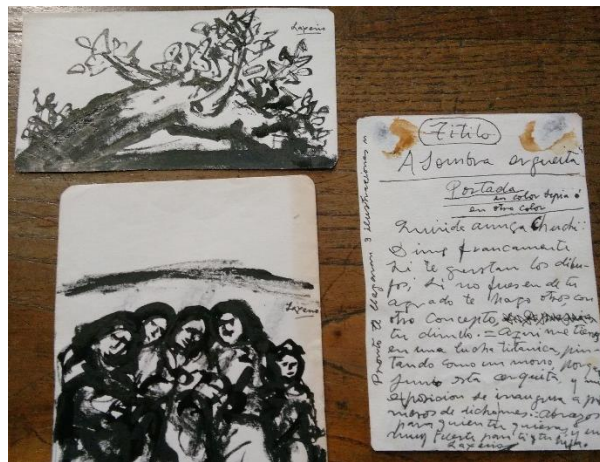 Laxeiro
Laxeiro
Título
A Sombra ergueita
Portada
en color sepia ó
en otro color
Querida amiga Chechi:
Dime francamente
si te gustan los dibu-
jos; si no fuesen de tu
agrado te hago otros con
otro concepto,
tu dirás. = Aquí me tienes
en una lucha titánica, pin-
tando como un moro, porque
junto esta
exposición se inaugura a pri-
meros de diciembre. Abrazos
para quienes quieras, y un
muy fuerte para ti y tu
Laxeiro
Pronto te llegarán y ilustraciones